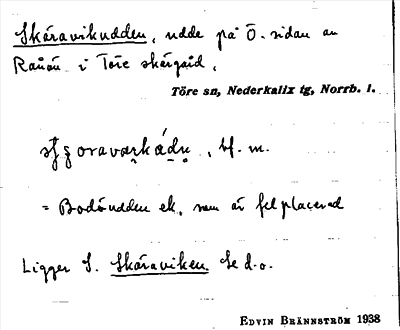 Skäravikudden, udde på Ö. sidan av
Rånön i Töre skärgård.
Töre sn, Nederkalix tg, Norrb. l.
bf. m.
= Bodöudden ek. som är felplacerad
Ligger S. Skäraviken. Se d.o.
EDVIN BRÄNNSTRÖM 1938